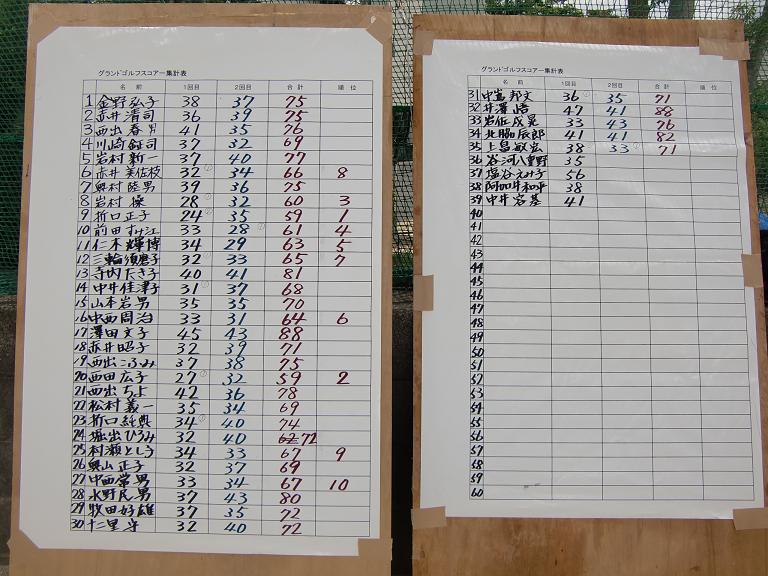 グランドゴルフスコアー集計表
名 前 1回目 2回目 合 計 順 位
1 金野弘子 38 37 75
2 赤井清司 36 39 75
3 西出春男 41 35 76
4 川崎鉦司 37 32 69
5 岩村新一 37 40 77
6 赤井美佐枝 32 34 66 8
7 奥村陸男 39 36 75
8 岩村 操 28 32 60 3
9 折口正子 24 35 59 1
10 前田すけ江 33 28 61 4
11 仁木輝博 34 29 63 5
12 三輪須磨子 32 33 65 7
13 寺内たき子 40 41 81
14 中井佳津子 31 37 68
15 山本岩男 35 35 70
16 中西周治 33 31 64 6
17 澤田文子 45 43 88
18 赤井昭子 32 39 71
19 西出こふみ 37 38 75
20 西田広子 27 32 59 2
21 西出ちよ 42 36 78
22 松村義一 35 34 69
23 折口純典 34 40 74
24 堀出ひろみ 32 40 62 72
25 村瀬とし子 34 33 67 9
26 奥山正子 32 37 69
27 中西常男 33 34 67 10
28 水野民男 37 43 80
29 牧田好雄 37 35 72
30 十二里守 32 40 72
グランドゴルフスコアー集計表
名 前 1回目 2回目 合 計 順 位
31 中嶌邦文 36 35 71
32 井澤 悟 47 41 88
33 岩佐成晃 33 43 76
34 北脇辰郎 41 41 82
35 上畠敏宏 38 33 71
36 谷河八重野 35
37 塩谷えみ子 56
38 阿加井和平 38
39 中井容基 41
40
41
42
43
44
45
46
47
48
49
50
51
52
53
54
55
56
57
58
59
60